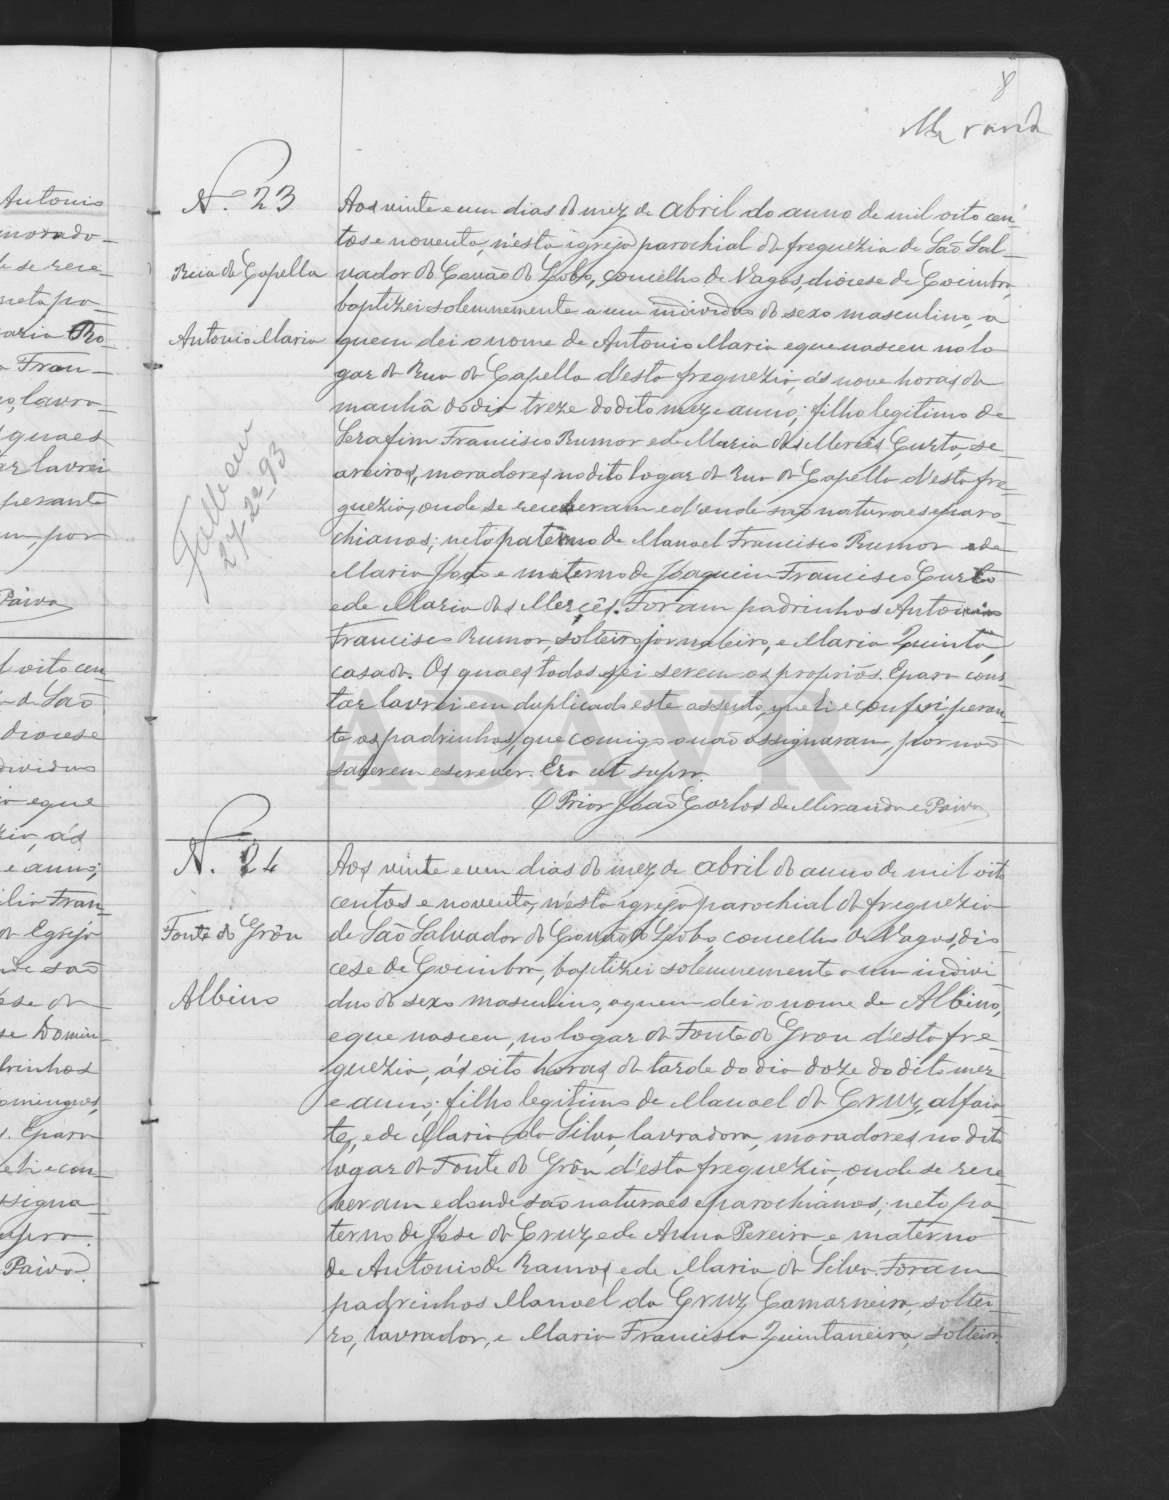 8
Miranda
N.º 23
Rua da Capella
Antonio Maria
Falleceu
27-2-93
Aos vinte e um dias do mez de Abril do anno de mil oito cen-
tos e noventa, n'esta igreja parochial da freguezia de São Sal-
vador de Covão do Lobo, concelho de Vagos, diocese de Coimbra,
baptizei solemnemente a um individuo do sexo masculino, a
quem dei o nome de Antonio Maria e que nasceu no lo
gar da Rua da Capella d'esta freguezia, ás nove horas da
manhã do dia treze do dito mez e anno; filho legitimo de
Serafim Francisco Rumor e de Maria das Mercês Curta, se-
areiros, moradores no dito logar da Rua da Capella d'esta fre-
guezia, onde se receberam e d'onde são naturaes e paro-
chianos; neto paterno de Manoel Francisco Rumor e de
Maria e materno de Joaquim Francisco Curto
e de Maria das Mercês. Foram padrinhos Antonio
Francisco Rumor, solteiro, jornaleiro, e Maria Quinta,
casada. Os quaes todos sei serem os proprios. E para cons-
tar lavrei em duplicado este assento, que li e conferi peran-
te os padrinhos, que comigo o não assignaram, por não
saberem escrever. Era ut supra.
O Prior João Carlos de Miranda e Paiva
N. 24
Fonte do Grôu
Albino
Aos vinte e um dias do mez de Abril do anno de mil oito
centos e noventa, n'esta igreja parochial da freguezia
de São Salvador de Covão do Lobo, concelho de Vagos, dio-
cese de Coimbra, baptizei solemnemente a um indivi
duo do sexo masculino, a quem dei o nome de Albino,
e que nasceu, no logar da Fonte do Grou d'esta fre-
guezia, ás oito horas da tarde do dia doze do dito mez
e anno; filho legitimo de Manoel da Cruz, alfaia-
te, e de Maria da Silva, lavradora, moradores no dito
logar da Fonte do Grôu, d'esta freguezia, onde se rece-
beram e d'onde são naturaes e parochianos; neto pa-
terno de José da Cruz e de Anna Pereira e materno
de Antonio de Ramos e de Maria da Silva. Foram
padrinhos Manoel da Cruz Camarneiro, soltei-
ro, lavrador, e Maria Francisca Quintaneira, solteira.
ADAVR